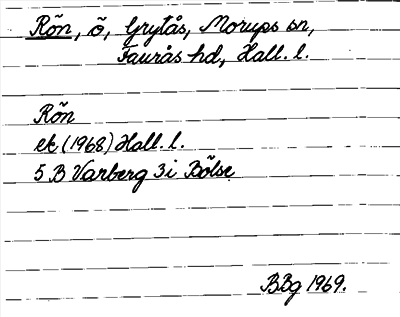 Rön, ö, Grytås, Morups sn,
Faurås hd, Hall. l.
Rön
ek (1968) Hall. l.
5 B Varberg 3i Bölse
BBg 1969.